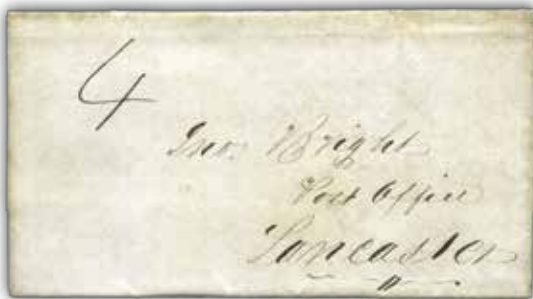 4
Jno. Wright
Post Office
Lancaster